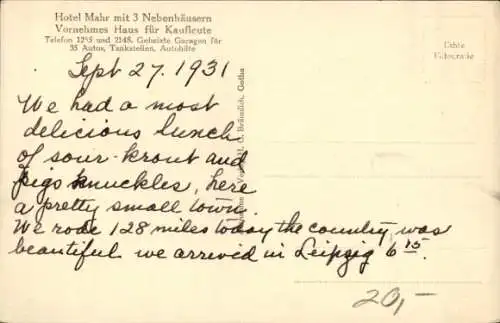 Hotel Mahr mit 3 Nebenhäusern
Vornehmes Haus für Kaufleute
Telefon 1295 und 2148. Geheizte Garagen für
35 Autos, Tankstellen, Autohilfe
Echte
Fotografie
Sept 27. 1931
We had a most
delicious lunch
of sour-krout and
pigs knuckles, here
a pretty small town.
We rode 128 miles today the country was
beautiful we arrived in Leipzig 6 15.
H. C. Bräunlich, Gotha
20,-